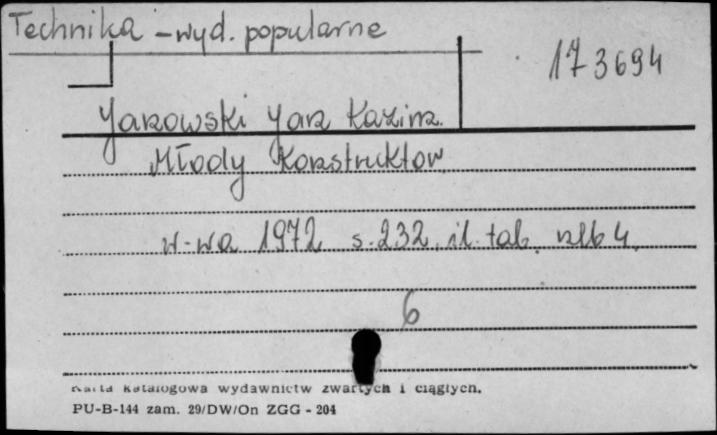 Technika - wyd. popularne
173694
Janowski Jan Kazim.
Młody Konstruktor
W-wa 1972 s. 232, il. tab. nlb 4.
6
Karta katalogowa wydawnictw zwartych i ciągłych.
PU-B-144 zam. 29/DW/On ZGG - 204